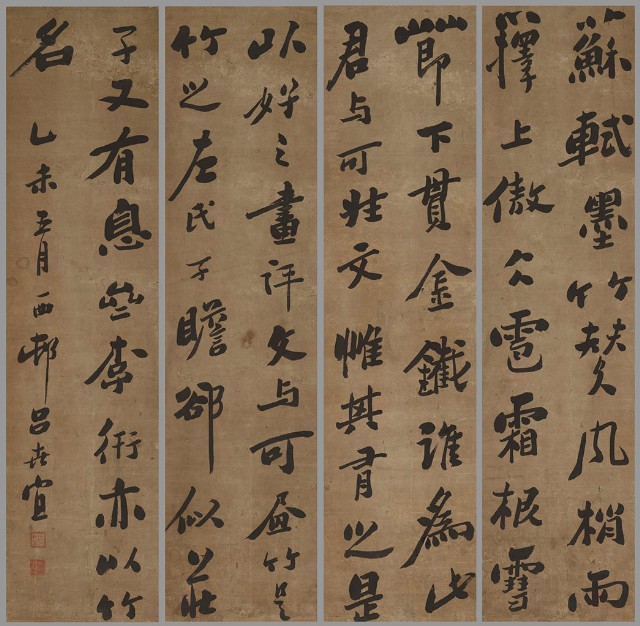 蘇軾墨竹贊風梢雨
籜上傲仌雹霜根雪
節下貫金鐵誰為此
君与可姓文惟其有之是
以好之畫評文与可昼竹是
竹之左氏子瞻卻似莊
子又有息齋李衎亦以竹
名 乙未五月西邨呂世宜